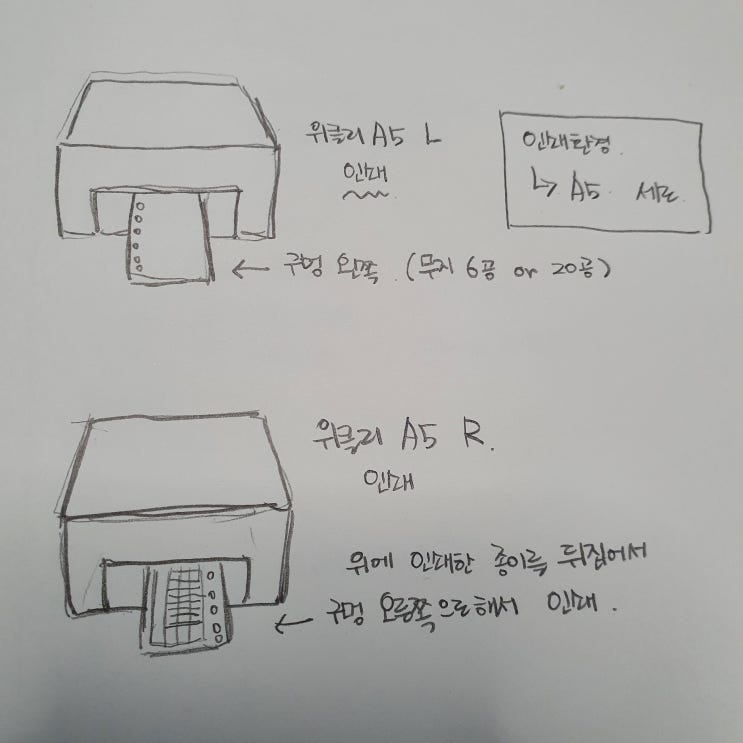 위클리 A5 L
인쇄
인쇄환경.
↳ A5. 세로
← 구멍 왼쪽. (무지 6공 or 20공)
위클리 A5 R.
인쇄
위에 인쇄한 종이를 뒤집어서
← 구멍 오른쪽으로해서 인쇄.